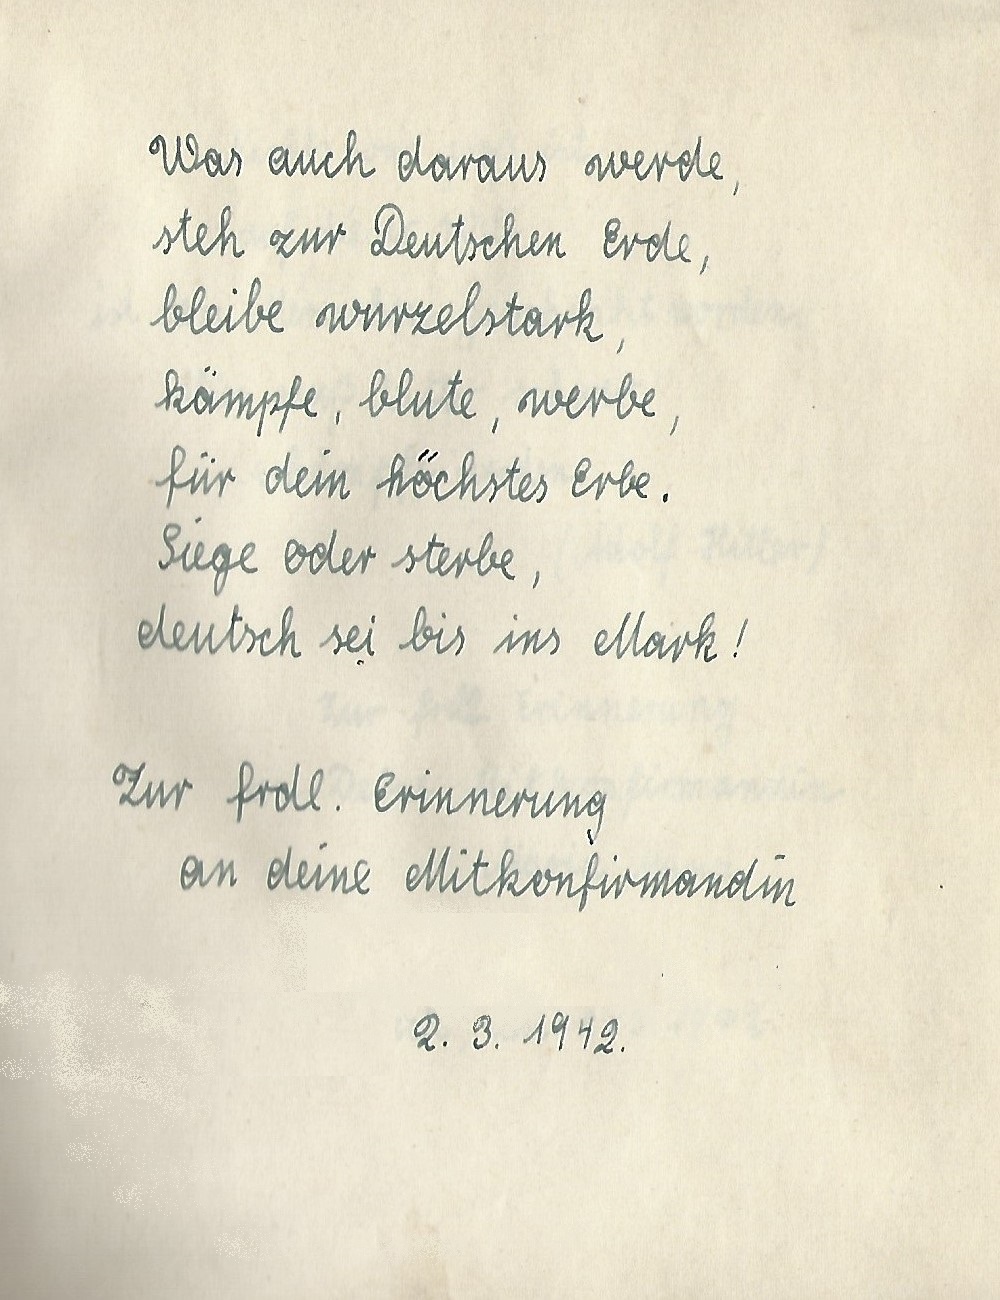 Was auch daraus werde,
steh zur Deutschen Erde,
bleibe wurzelstark,
kämpfe, blute, werbe,
für dein höchstes Erbe.
Siege oder sterbe,
deutsch sei bis ins Mark!
Zur frdl. Erinnerung
an deine Mitkonfirmandin
2. 3. 1942.